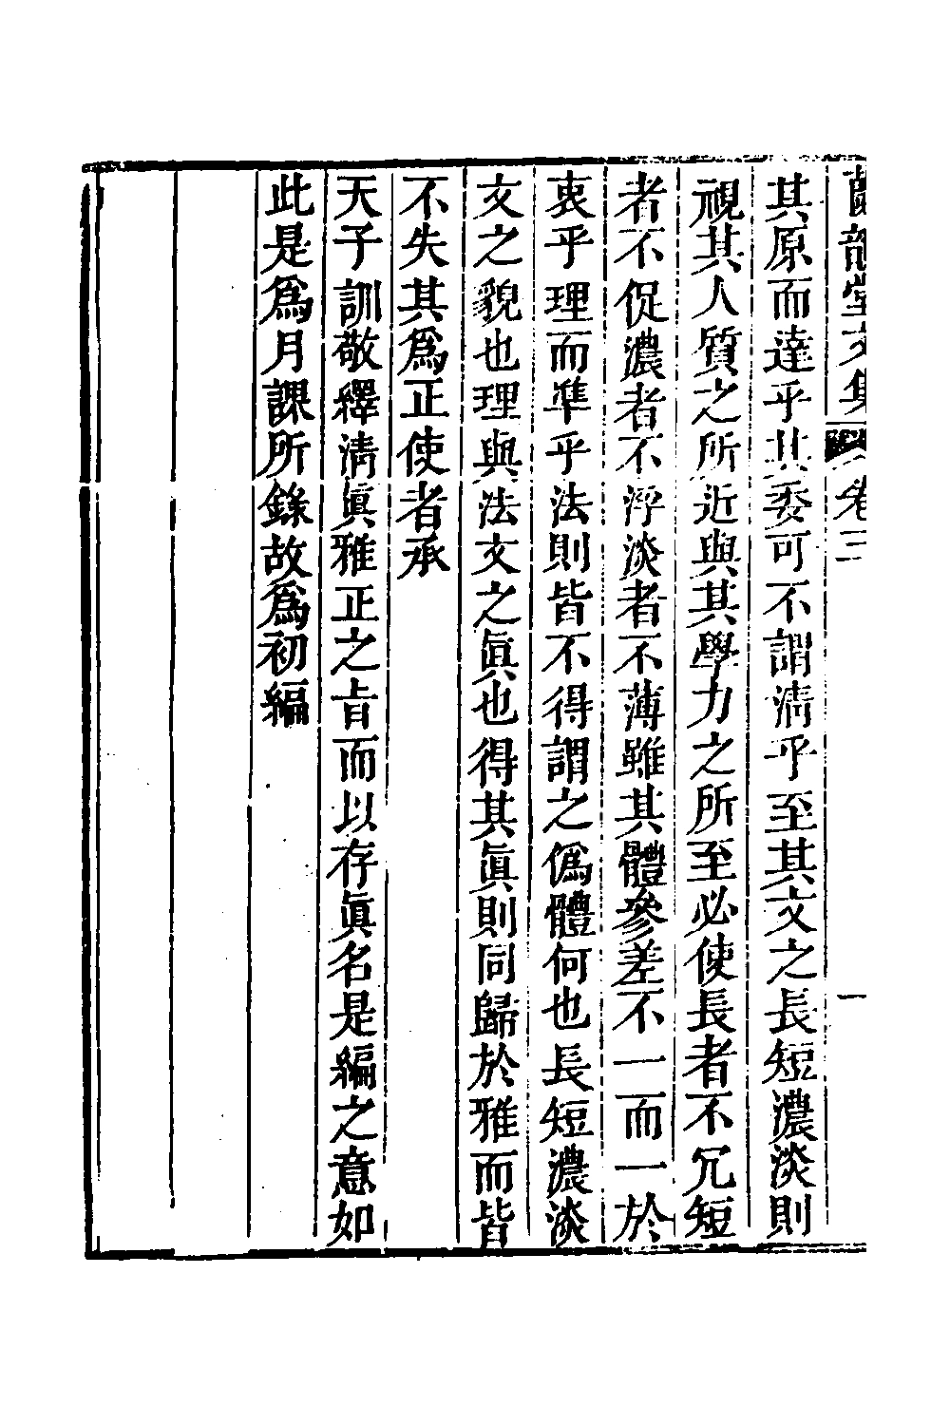 蘭韻堂文集 卷三 一
其原而達乎其委可不謂清乎至其文之長短濃淡則
視其人質之所近與其學力之所至必使長者不冗短
者不促濃者不浮淡者不薄雖其體參差不一而一於
衷乎理而凖乎法則皆不得謂之僞體何也長短濃淡
文之貌也理與法文之眞也得其眞則同歸於雅而皆
不失其爲正使者承
天子訓敬繹清眞雅正之旨而以存眞名是編之意如
此是爲月課所錄故爲初編